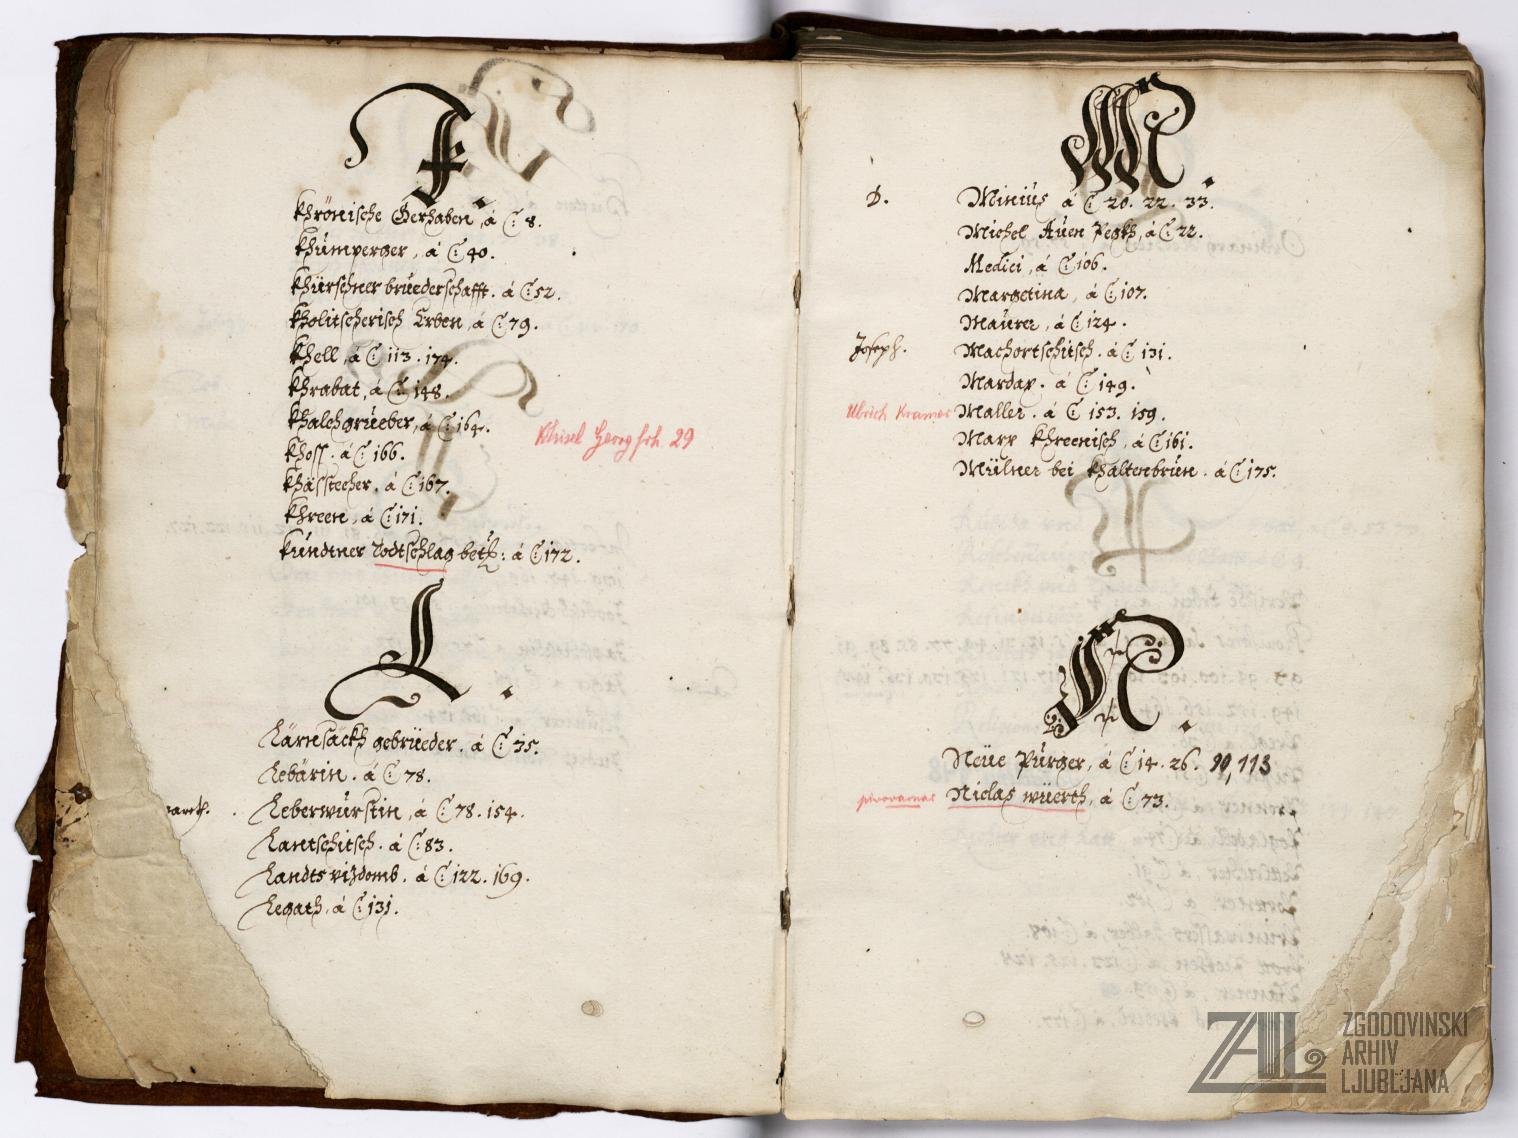 K.
Khrönische Gerhaben, á C: 8.
Khumperger, á C: 40.
Khürschner bruederschafft. á C: 52.
Kholitscherisch Erben, á C: 79.
Khell, á C: 113. 174.
Khrabat, á C: 148.
Khalchgrueber, á C: 164.
Khisel Georg frh. 29
Khoss. á C: 166.
Khässtecher, á C: 167.
Khreen, á C: 171.
Kundtner Todtschlag betr: á C: 172.
L.
Lärnsackh gebrüeder. á C: 35.
Lebärin. á C: 78.
Leberwurstin, á C: 78. 154.
Lantschitsch. á C: 83.
Landts vizdomb. á C: 122. 169.
Legath, á C: 131.
M.
D. Minius á C: 20. 22. 33.
Michel Auen á C: 22.
Medici, á C: 106.
Margetina, á C: 107.
Maurer, á C: 124.
Joseph. Machortschitsch. á C: 131.
Mardax. á C: 149.
Ulrich Kramer Maller. á C: 153. 159.
Marx Khreenisch, á C: 161.
Mülner bei Khaltenbrun. á C: 175.
N.
Neue Purger, á C: 14. 26. 90, 113
pivovarnar Niclas wüerth, á C: 73.
ZAL ZGODOVINSKI
ARHIV
LJUBLJANA